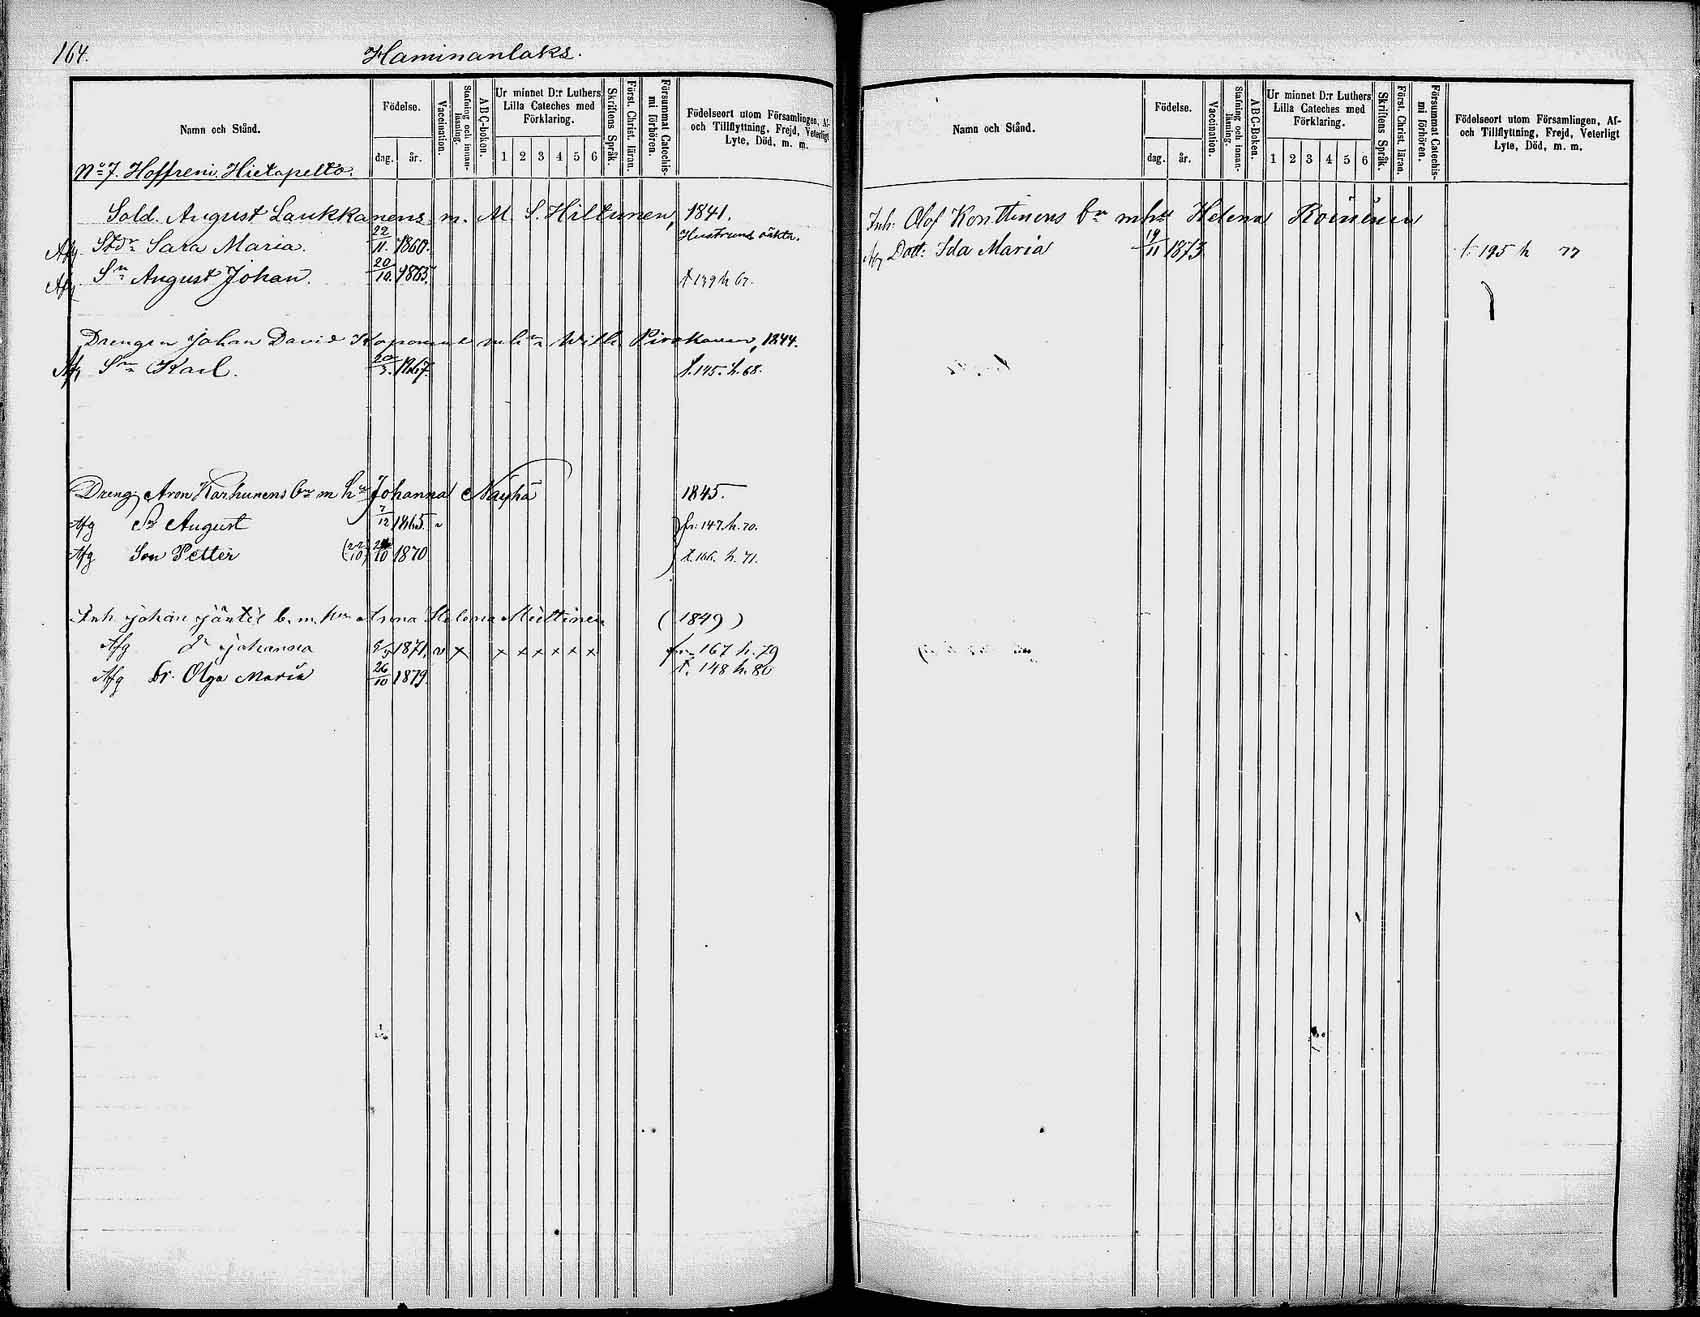 164.
Haminanlaks.
Namn och Stånd.
Födelse.
dag. år.
Vaccination.
Stafning och innanläsning.
ABC-boken.
Ur minnet D:r Luthers Lilla Cateches med Förklaring.
1 2 3 4 5 6
Skriftens Språk.
Först. Christ. läran.
Försummat Catechismi förhören.
Födelseort utom Församlingen, Af- och Tillflyttning, Frejd, Veterligt Lyte, Död, m. m.
No 7. Hoffreni, Hietapelto.
Sold. August Laukkanens m. M. S. Hiltunen, 1841.
Afg Stdr Sara Maria. 22/11. 1860. Hustruns oäkta.
Afg Sn August Johan. 20/10. 1865. f 139 h 67.
Drengen Johan David m hu Wilh. 1844.
Afg Sn Karl. 20/3. 1867. f. 145. h. 68.
Dreng Aron Karhunens br m hu Johanna Näyhä 1845.
Afg Sn August 7/12 1865 fr. 147. h. 70.
Afg Son Petter (22/10) 1870 f. 166. h. 71.
Inh. Johan Jäntis b. m. hu Anna Helena Miettinen (1849)
Afg Dr Johanna 1871. v x x x x x x x fr. 167 h. 79
Afg Dr. Olga Maria 26/10 1879. f. 148 h. 80
Namn och Stånd.
Födelse.
dag. år.
Vaccination.
Stafning och innanläsning.
ABC-Boken.
Ur minnet D:r Luthers Lilla Cateches med Förklaring.
1 2 3 4 5 6
Skriftens Språk.
Först. Christ. läran.
Försummat Catechismi förhören.
Födelseort utom Församlingen, Af- och Tillflyttning, Frejd, Veterligt Lyte, Död, m. m.
Inh: Olof Konttinens br m hu Helena Roininen
Afg Dott: Ida Maria 19/11 1873 f. 195 h 77